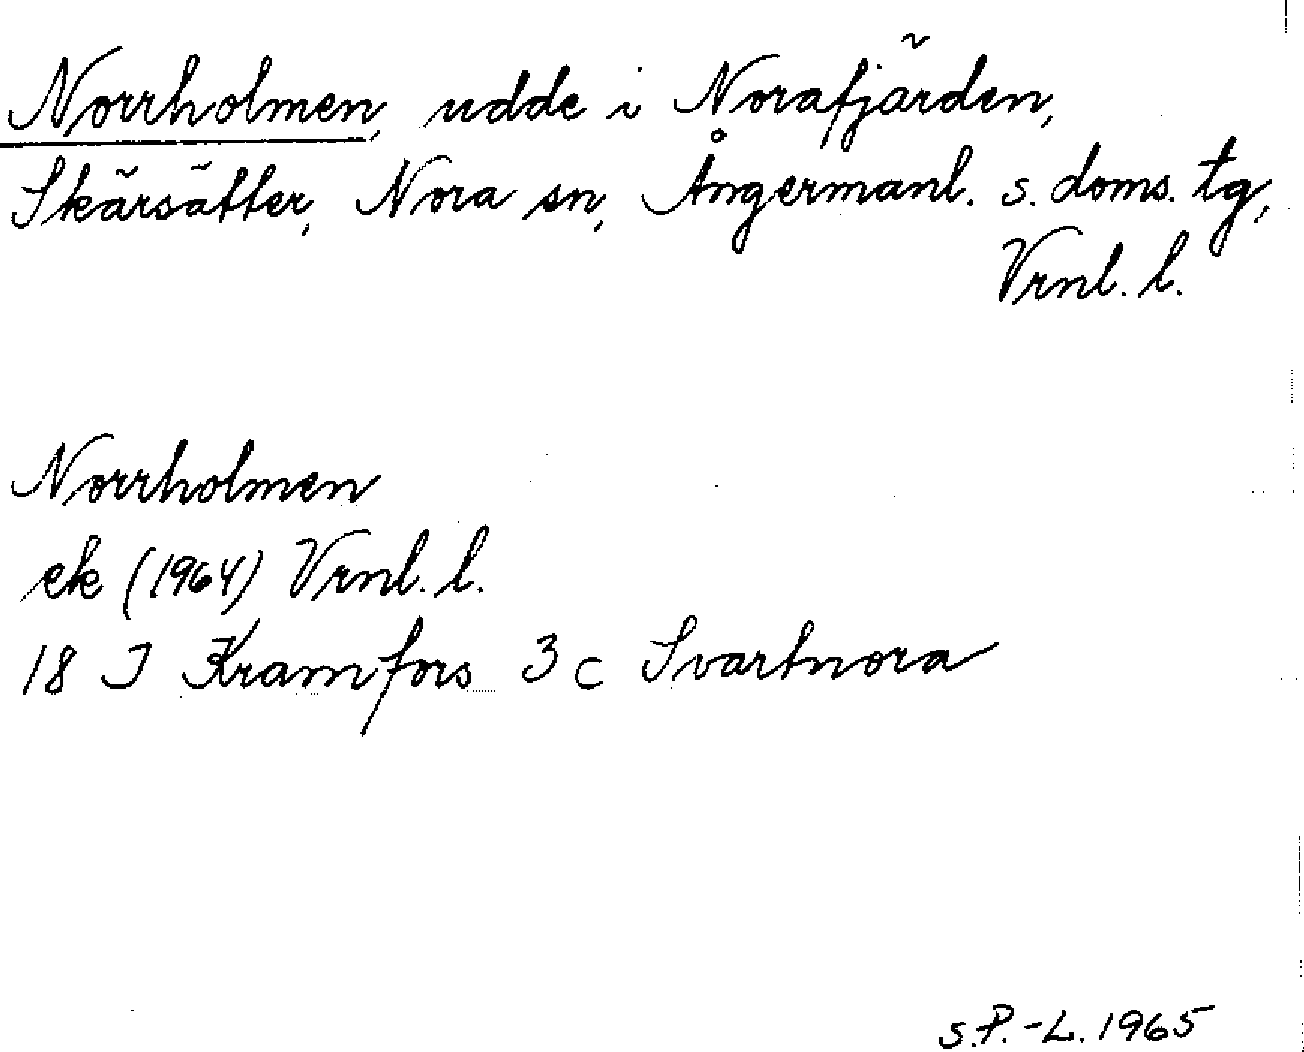 Norrholmen, udde i Norafjärden,
Skärsätter, Nora sn, Ångermanl. s. doms. tg,
Vrnl. l.
Norrholmen
ek (1964) Vrnl. l.
18 J Kramfors 3 c Svartnora
S.P.-L. 1965